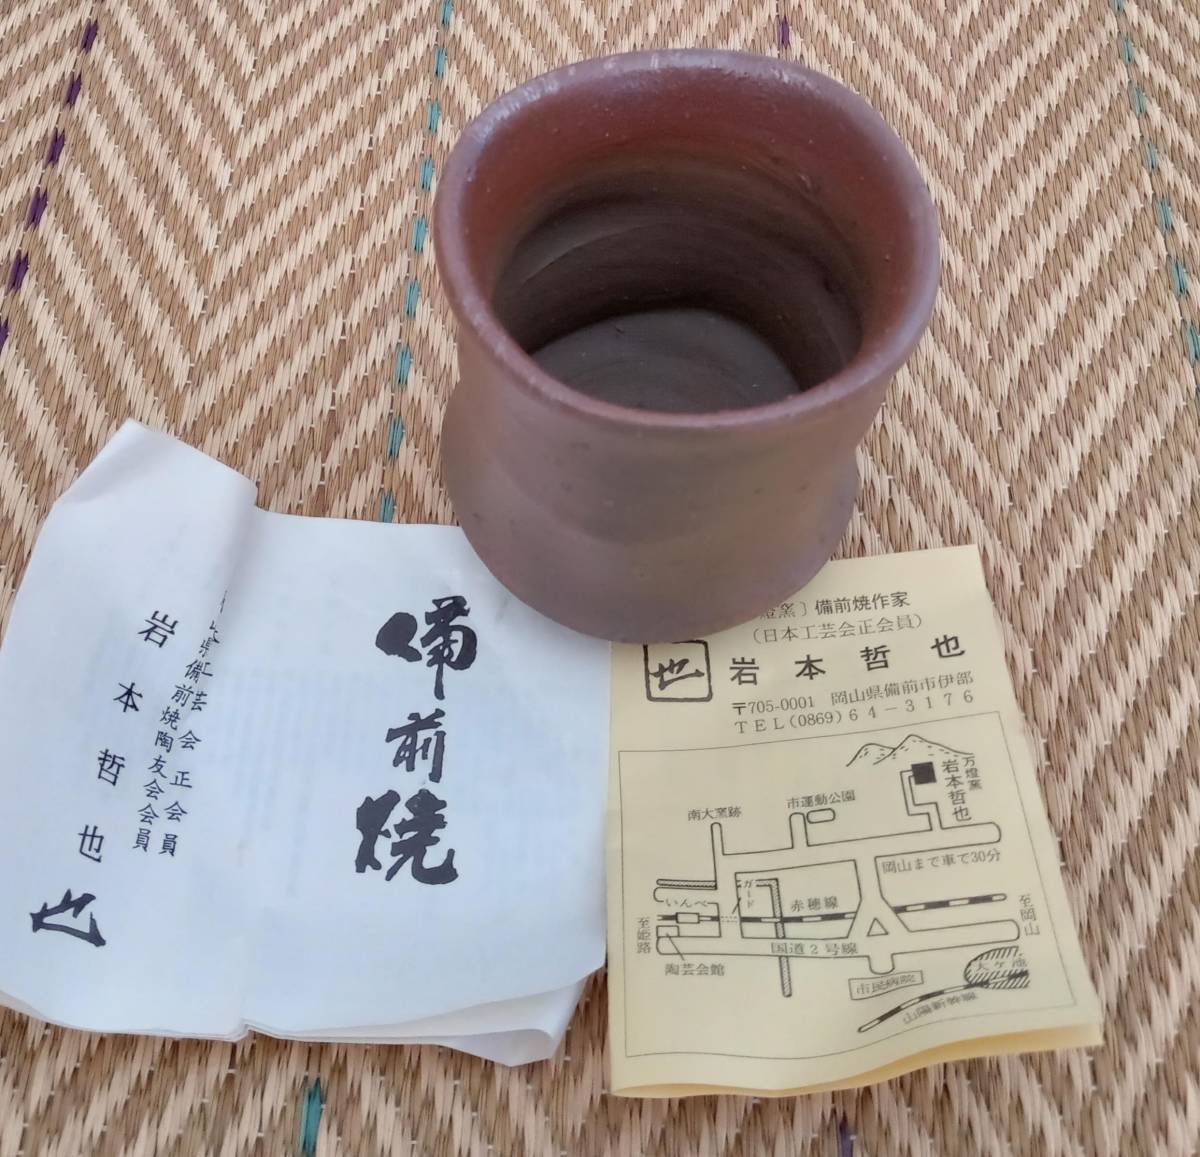 備前焼
県工芸会正会員
備前焼陶友会会員
岩本哲也
也
燈窯〕備前焼作家
(日本工芸会正会員)
也
岩本哲也
〒705-0001 岡山県備前市伊部
TEL(0869)64-3176
万燈窯
岩本哲也
市運動公園
南大窯跡
岡山まで車で30分
ガード
いんべ
赤穂線
至岡山
至姫路
国道2号線
陶芸会館
市民病院
大ヶ池